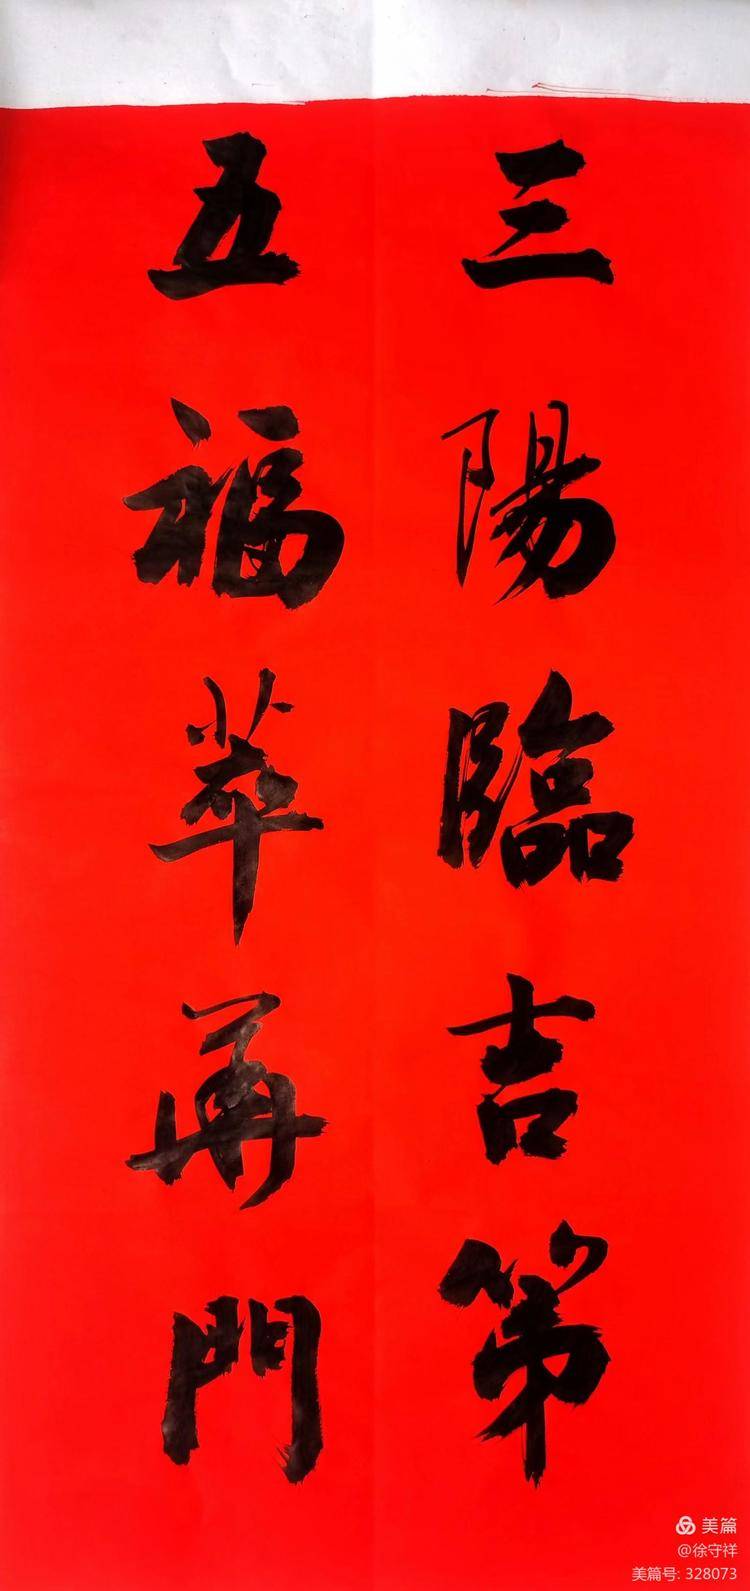 三陽臨吉第
五福萃華門
美篇
@徐守祥
美篇号: 328073